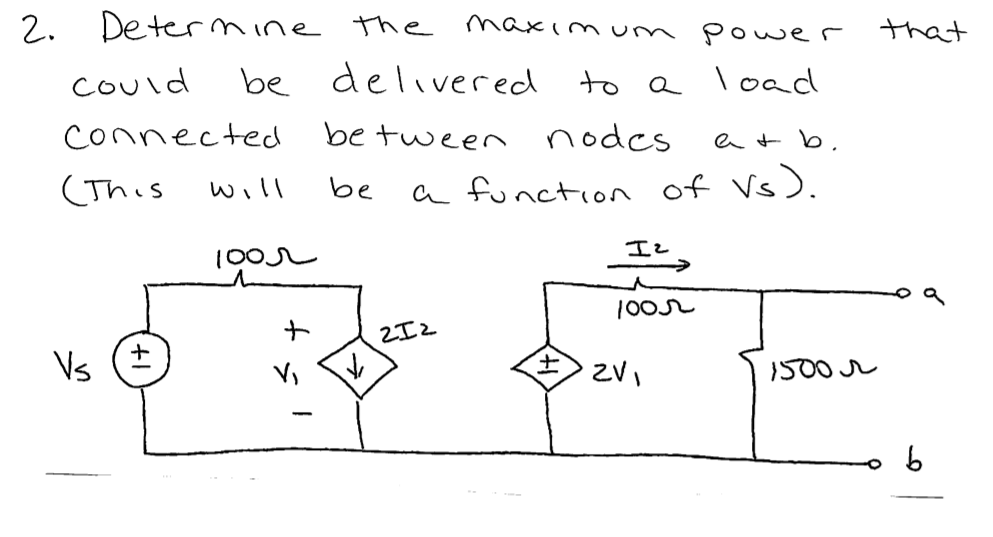 2. Determine the maximum power that
could be delivered to a load
connected between nodes a + b.
(This will be a function of Vs).
100Ω
I2
a
100Ω
+
2I2
Vs
±
V1
±
2V1
1500Ω
−
b